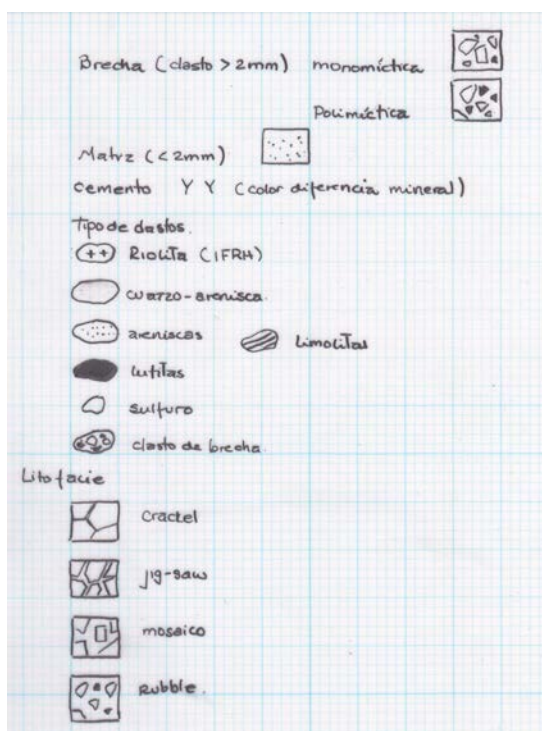 Brecha (clasto > 2mm) monomíctica
Polimíctica
Matrz (< 2mm)
cemento Y Y (color diferencia mineral)
Tipo de clastos.
Riolita (IFRH)
cuarzo-arenisca.
areniscas
Limolitas
lutitas
sulfuro
clasto de brecha.
Litofacie
Crackel
jig-saw
mosaico
Rubble.